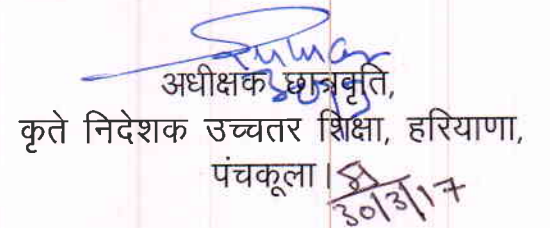 अधीक्षक छात्रवृति,
कृते निदेशक उच्चतर शिक्षा, हरियाणा,
पंचकूला।
30/3/17